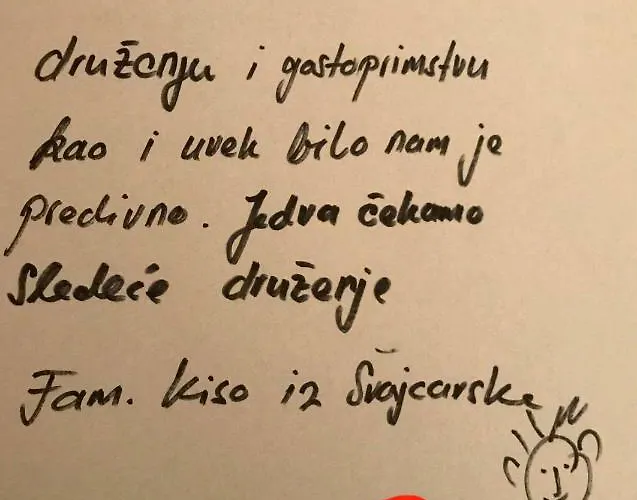 druženju i gostoprimstvu
kao i uvek bilo nam je
predivno. Jedva čekamo
Sledeće druženje
Fam. Kiso iz Švajcarske